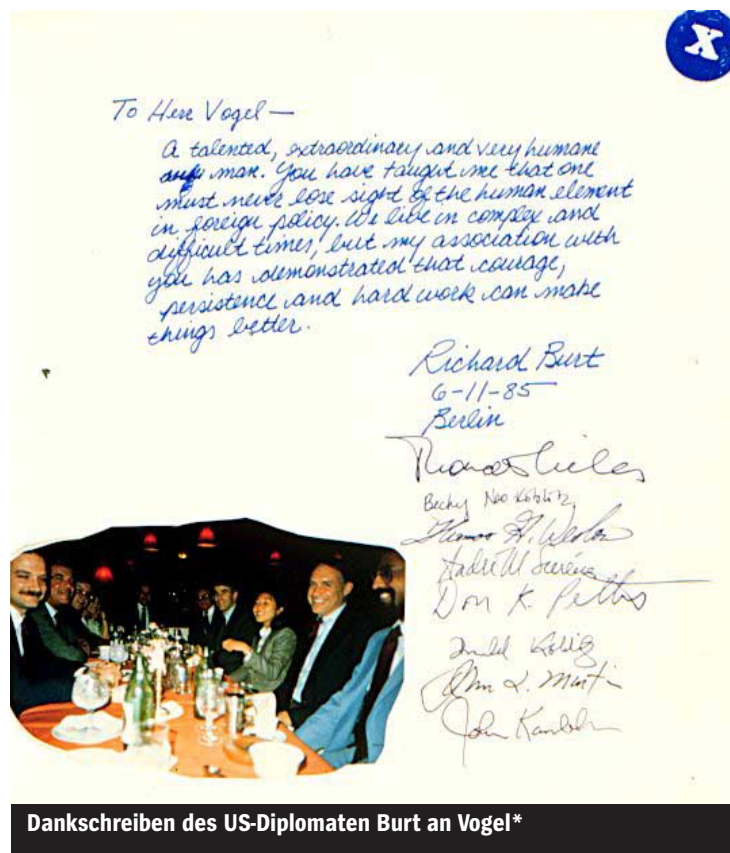 X
To Herr Vogel—
A talented, extraordinary and very humane
man. You have taught me that one
must never lose sight of the human element
in foreign policy. We live in complex and
difficult times, but my association with
you has demonstrated that courage,
persistence and hard work can make
things better.
Richard Burt
6-11-85
Berlin
Becky
Thomas
Don K.
John L. Martin
John
Dankschreiben des US-Diplomaten Burt an Vogel*